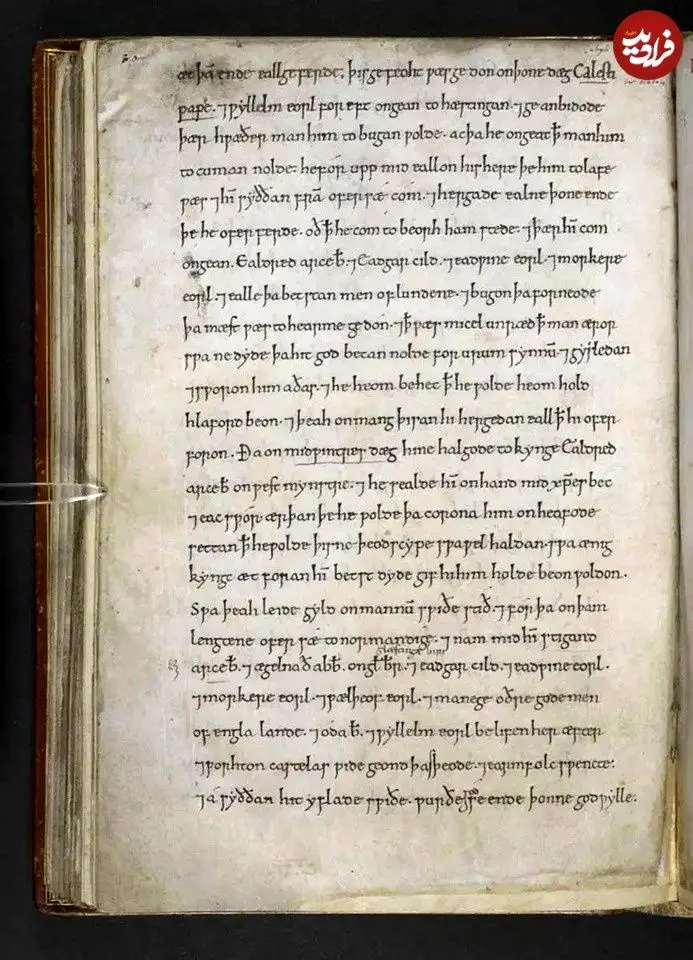 فرادید
æt þā ende eallge ferde; þis gefeoht wæs ge don on þone dæg Calesti
pape. ⁊ wyllelm eorl for eft ongean to hæstingan. ⁊ ge anbidode
þær hwæðer man him to bugan wolde. ac þa he ongeat ꝥ man him
to cuman nolde. he for upp mid eallon his here þe him to lafe
wæs ⁊ hī syððan frā ofer sæ com. ⁊ hergade ealne þone ende
þe he ofer ferde. oð ꝥ he com to beorh ham stede. ⁊ þær hī com
ongean. Ealdred arceb̄. ⁊ Eadgar cild. ⁊ eadwine eorl. ⁊ morkere
eorl. ⁊ ealle þa betstan men of lundene. ⁊ bugon þa for neode
þa mæst wæs to hearme ge don. ⁊ ꝥ wæs micel unræd ꝥ man æror
swa ne dyde þa hit god betan nolde for urum synnū. ⁊ gysledan
⁊ sworon him aðas. ⁊ he heom behet ꝥ he wolde heom hold
hlaford beon. ⁊ þeah onmang þisan hi hergedan eall ꝥ hi ofer
foron. Ða on midwintres dæg hine halgode to kynge Ealdred
arceb̄ on west mynstre. ⁊ he sealde hī on hand mid xp̄es bec
⁊ eac swor ær þan þe he wolde þa corona him on heafode
settan ꝥ he wolde þisne þeodscype swa wel haldan swa ænig
kyngc æt foran hī betst dyde gif hi him holde beon woldon.
Swa þeah leide gyld on mannū swiðe stið. ⁊ for þa on þam
lengtene ofer sæ to normandige. ⁊ nam mid hī stigand
arceb̄. ⁊ ægelnað abb̄. on glæstinga bīrī. ⁊ eadgar cild. ⁊ eadwine eorl.
⁊ morkere eorl. ⁊ wælþeof eorl. ⁊ manege oðre gode men
of engla lande. ⁊ oda b̄. ⁊ wyllelm eorl belifen her æfter
⁊ worhton castelas wide geond þas þeode. ⁊ earm folc swencte.
⁊ á syððan hit yflade swiðe. wurðe se ende þonne god wylle.